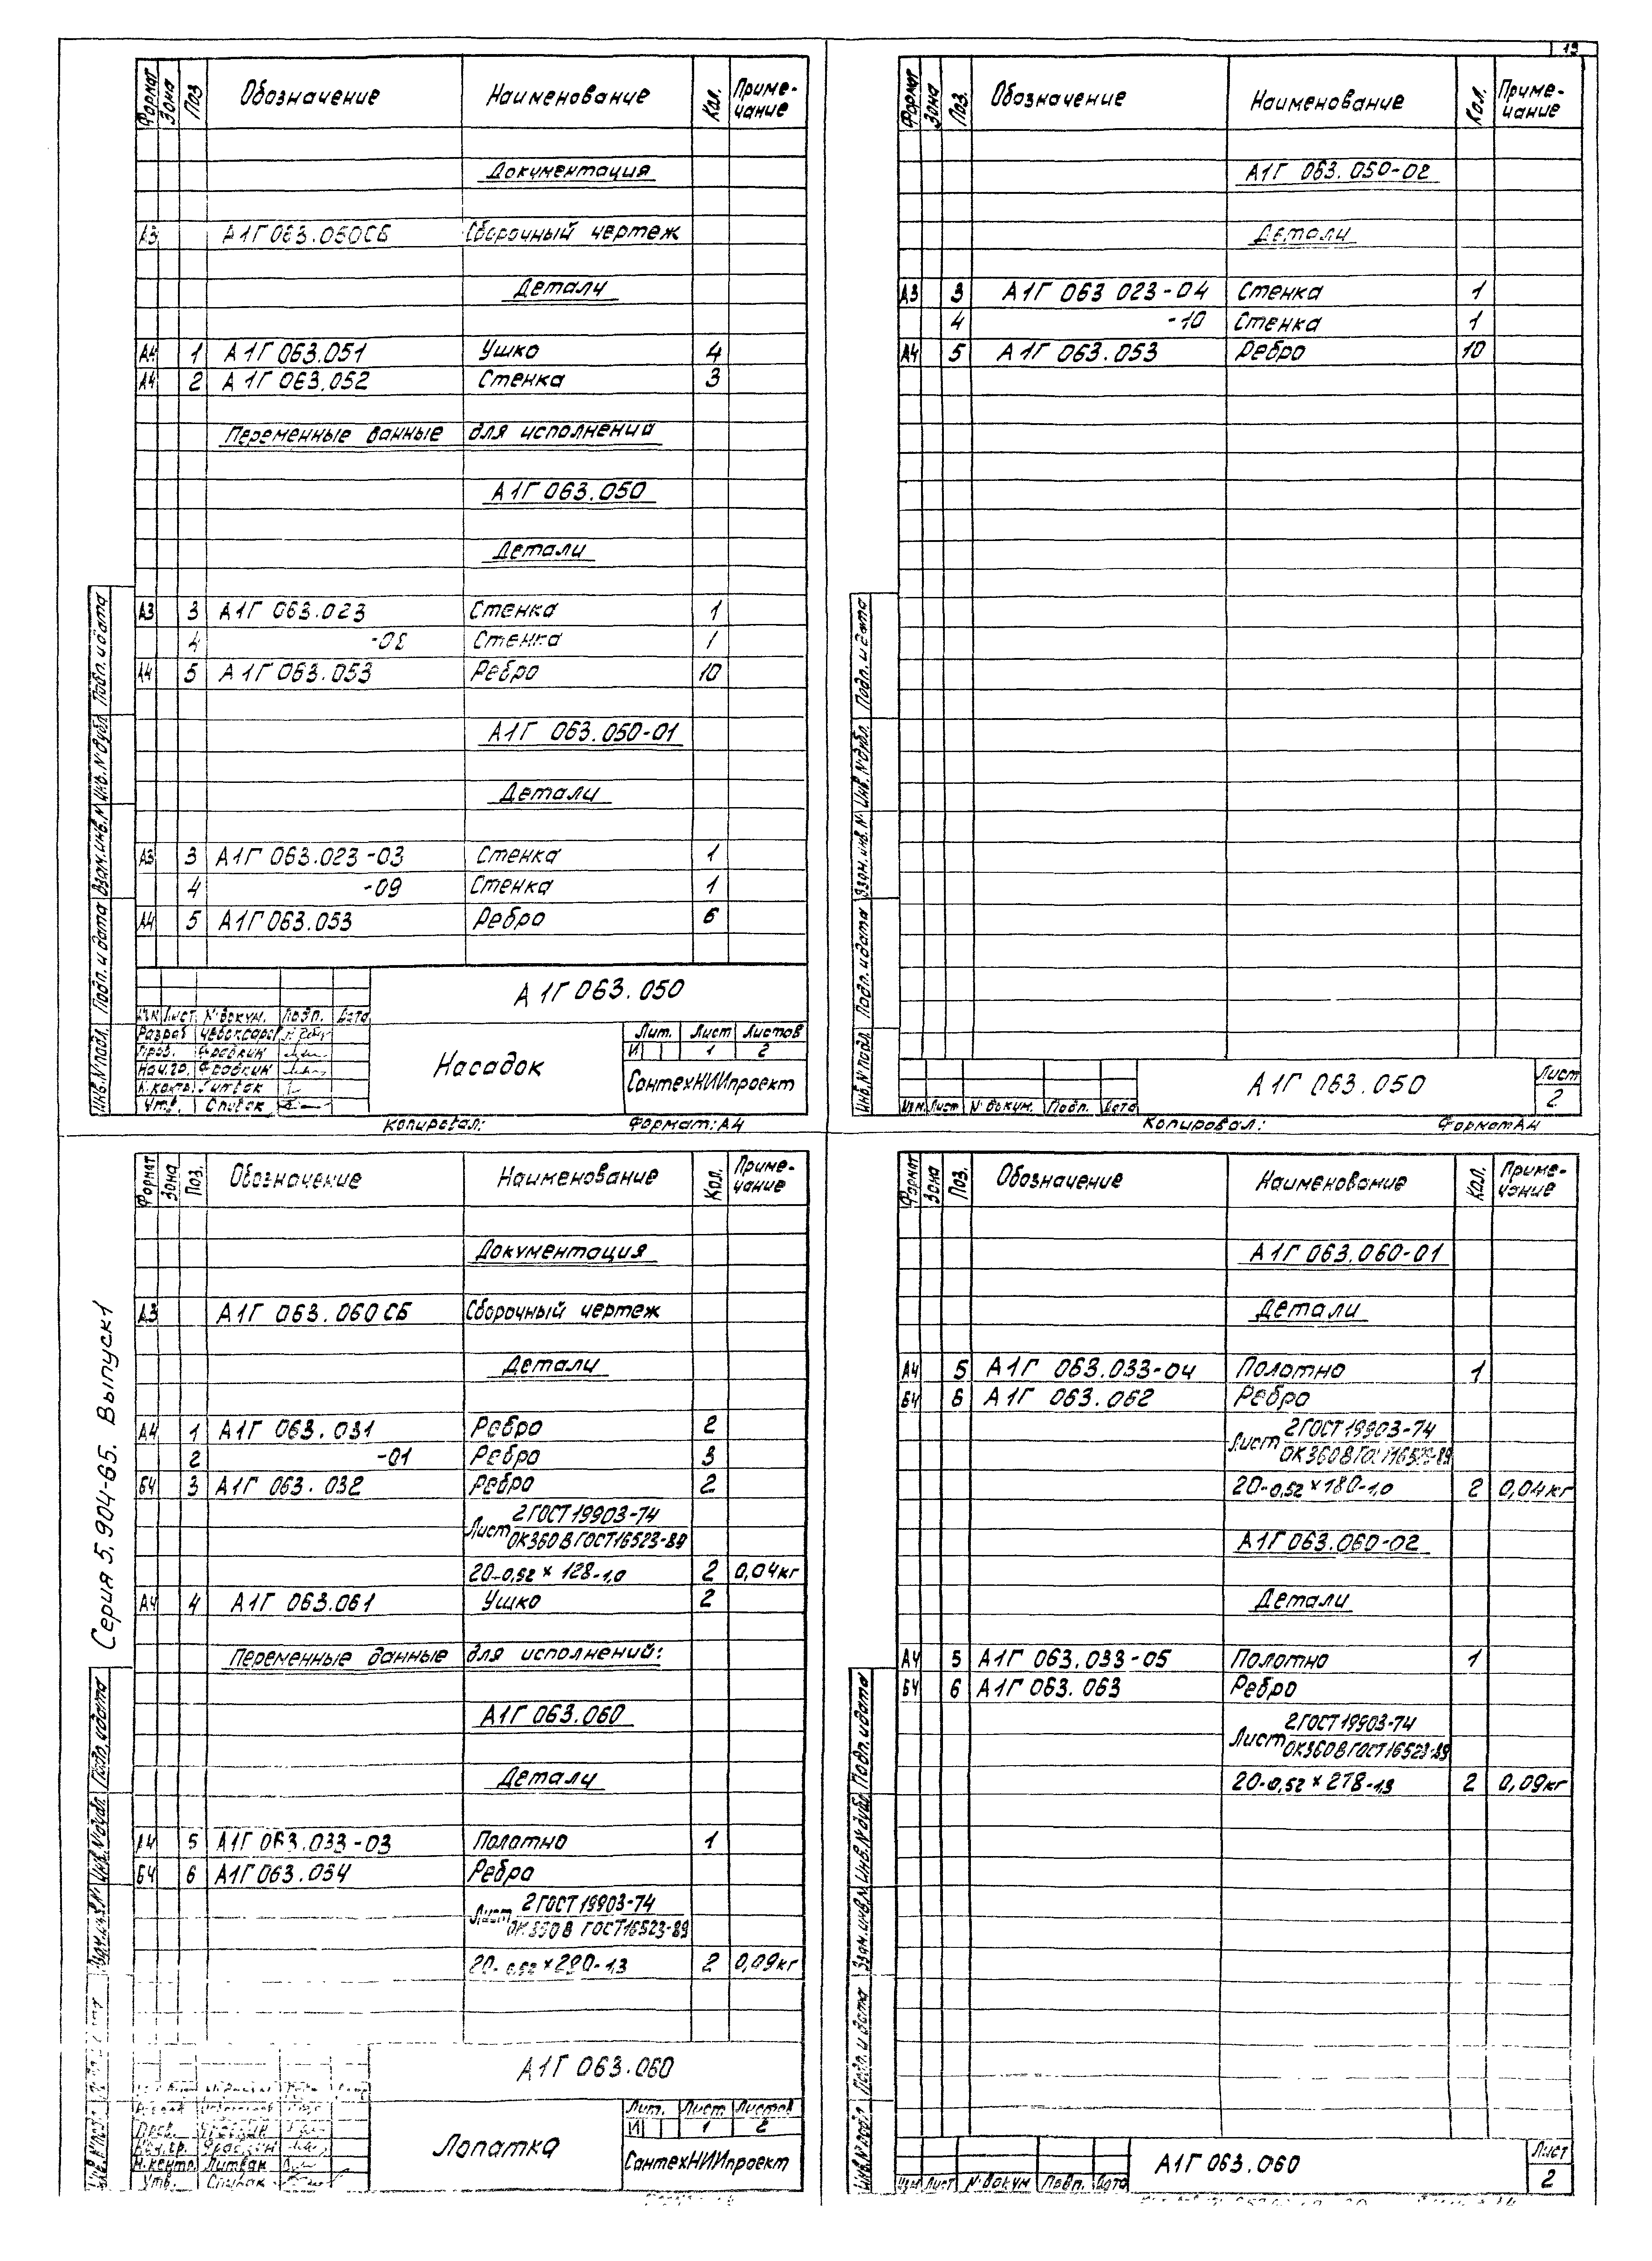 19
Формат Зона Поз Обозначение Наименование Кол. Приме-
чание
Документация
А3 А1Г 063.050СБ Сборочный чертеж
Детали
А4 1 А1Г 063.051 Ушко 4
А4 2 А1Г 063.052 Стенка 3
Переменные данные для исполнений
А1Г 063.050
Детали
А3 3 А1Г 063.023 Стенка 1
4 Стенка 1
А4 5 А1Г 063.053 Ребро 10
А1Г 063.050-01
Детали
А3 3 А1Г 063.023-03 Стенка 1
4 -09 Стенка 1
А4 5 А1Г 063.053 Ребро 6
А1Г 063.050
Изм Лист N докум. Подп. Дата
Разраб Чебоксаров
Пров. Фрадкин
Нач.гр. Фрадкин
Н.контр. Литвак
Утв. Спивак
Насадок
Лит. Лист Листов
И 1 2
СантехНИИпроект
Копировал: Формат: А4
Инв.N подл. Подп. и дата Взам.инв.N Инв.N дубл. Подп. и дата
Формат Зона Поз. Обозначение Наименование Кол. Приме-
чание
А1Г 063.050-02
Детали
А3 3 А1Г 063 023-04 Стенка 1
4 -10 Стенка 1
А4 5 А1Г 063.053 Ребро 10
Изм. Лист N докум. Подп. Дата
А1Г 063.050
Лист
2
Копировал: Формат А4
Инв.N подл. Подп. и дата Взам.инв.N Инв.N дубл. Подп. и дата
Серия 5.904-65. Выпуск 1
Формат Зона Поз. Обозначение Наименование Кол. Приме-
чание
Документация
А3 А1Г 063.060 СБ Сборочный чертеж
Детали
А4 1 А1Г 063.031 Ребро 2
2 -01 Ребро 3
Б4 3 А1Г 063.032 Ребро 2
Лист 2 ГОСТ 19903-74
ОК360В ГОСТ16523-89
20-0,52 × 128-1,0 2 0,04кг
А4 4 А1Г 063.061 Ушко 2
Переменные данные для исполнений:
А1Г 063.060
Детали
А4 5 А1Г 063.033-03 Полотно 1
Б4 6 А1Г 063.034 Ребро
Лист 2 ГОСТ 19903-74
ОК360В ГОСТ16523-89
20-0,52 × 290-1,3 2 0,09кг
А1Г 063.060
Пров. Фрадкин
Нач.гр. Фрадкин
Н.контр. Литвак
Утв. Спивак
Лопатка
Лит. Лист Листов
И 1 2
СантехНИИпроект
Инв.N дубл. Подп. и дата
Формат Зона Поз. Обозначение Наименование Кол. Приме-
чание
А1Г 063.060-01
Детали
А4 5 А1Г 063.033-04 Полотно 1
Б4 6 А1Г 063.062 Ребро
Лист 2 ГОСТ 19903-74
ОК360В ГОСТ16523-89
20-0,52 × 180-1,0 2 0,04кг
А1Г 063.060-02
Детали
А4 5 А1Г 063.033-05 Полотно 1
Б4 6 А1Г 063.063 Ребро
Лист 2 ГОСТ 19903-74
ОК360В ГОСТ16523-89
20-0,52 × 278-1,3 2 0,09кг
Изм Лист N докум Подп. Дата
А1Г 063.060
Лист
2
Инв.N подл Подп. и дата Взам.инв.N Инв.N дубл Подп. и дата